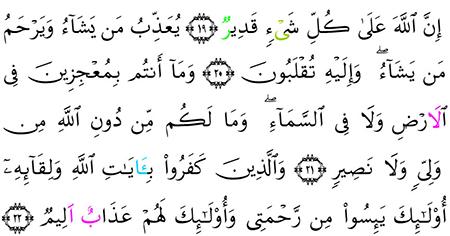 إِنَّ ٱللَّهَ عَلَىٰ كُلِّ شَىْءٍ قَدِيرٌ ١٩ يُعَذِّبُ مَن يَشَآءُ وَيَرْحَمُ
مَن يَشَآءُۖ وَإِلَيْهِ تُقْلَبُونَ ٢٠ وَمَآ أَنتُم بِمُعْجِزِينَ فِى
ٱلَارْضِ وَلَا فِى ٱلسَّمَآءِۖ وَمَا لَكُم مِّن دُونِ ٱللَّهِ مِن
وَلِىٍّ وَلَا نَصِيرٍ ٢١ وَٱلَّذِينَ كَفَرُوا۟ بِـَٔايَٰتِ ٱللَّهِ وَلِقَآئِهِۦٓ
أُو۟لَٰٓئِكَ يَئِسُوا۟ مِن رَّحْمَتِى وَأُو۟لَٰٓئِكَ لَهُمْ عَذَابٌ اَلِيمٌ ٢٢